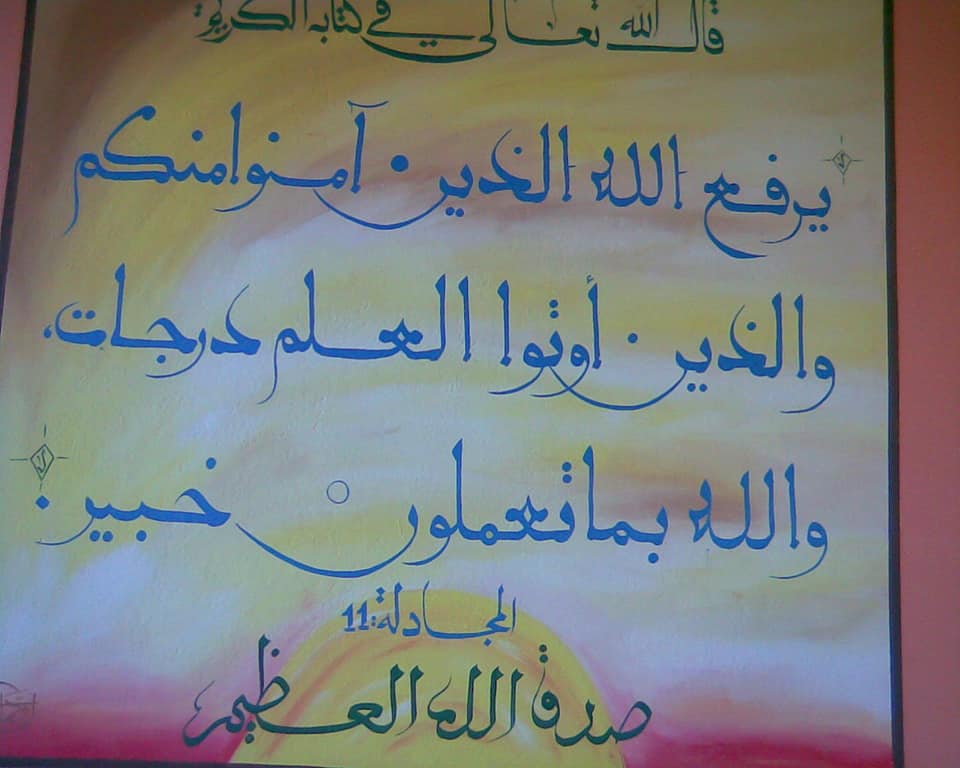 قال الله تعالى في كتابه الكريم:
يرفع الله الذين آمنوا منكم
والذين أوتوا العلم درجات،
والله بما تعملون خبير.
المجادلة:11
صدق الله العظيم